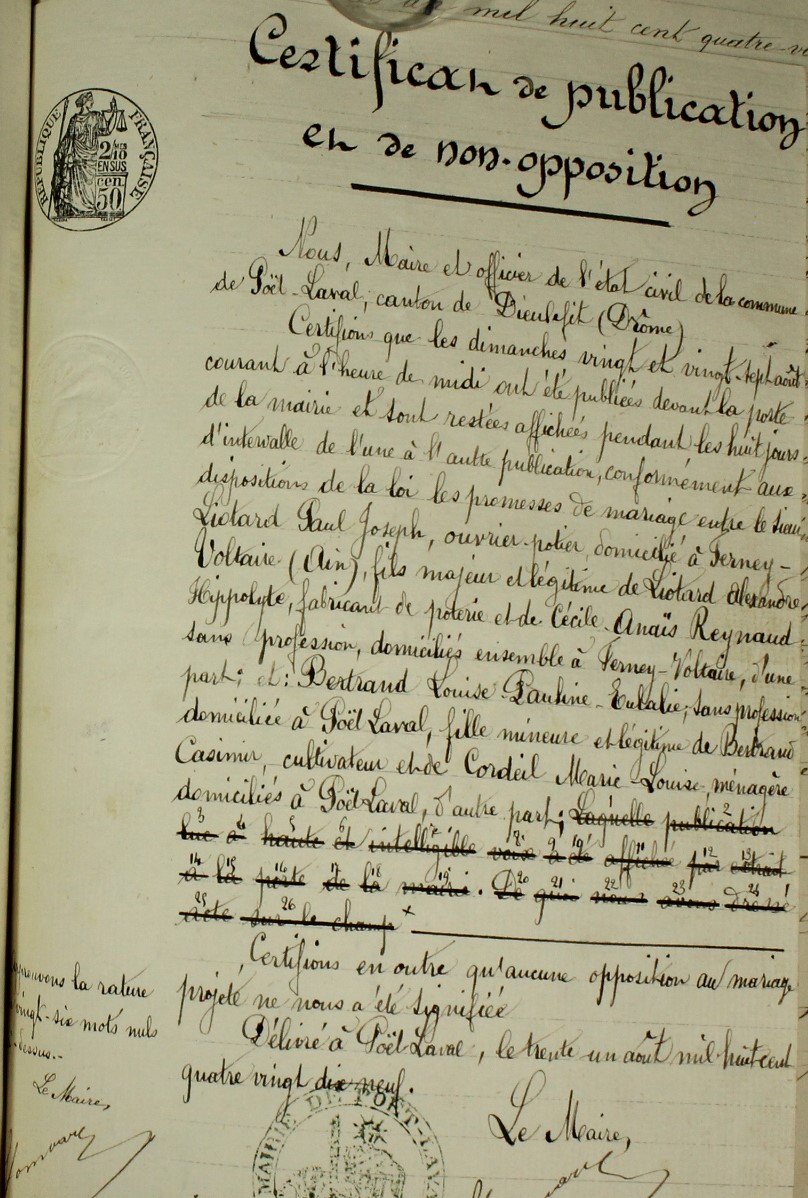 mil huit cent quatre
Certificat de publication
et de non-opposition
RÉPUBLIQUE FRANÇAISE
2/10
EN SUS
cen.
50
Nous, Maire et officier de l'état civil de la commune
de Poët-Laval, canton de Dieulefit (Drôme)
Certifions que les dimanches vingt et vingt-sept août
courant à l'heure de midi ont été publiées devant la porte
de la mairie et sont restées affichées pendant les huit jours
d'intervalle de l'une à l'autre publication, conformément aux
dispositions de la loi les promesses de mariage entre le sieur
Liotard Paul Joseph, ouvrier-potier, domicilié à Ferney-
Voltaire (Ain), fils majeur et légitime de Liotard Alexandre
Hippolyte, fabricant de poterie et de Cécile-Anaïs Reynaud
sans profession, domiciliés ensemble à Ferney-Voltaire, d'une
part; et: Bertrand Louise-Pauline-Eulalie, sans profession
domiciliée à Poët Laval, fille mineure et légitime de Bertrand
Casimir, cultivateur et de Cordeil Marie-Louise, ménagère
domiciliés à Poët Laval, d'autre part; Laquelle publication
lue à haute et intelligible voix a été affiché par extrait
à la porte de la mairie. De quoi nous avons dressé
acte sur le champ
Certifions en outre qu'aucune opposition au mariage
projeté ne nous a été signifiée
Délivré à Poët Laval, le trente un août mil huit cent
quatre vingt dix neuf.
la rature
vingt-six mots nuls
dessus.-
Le Maire,
Le Maire,
MAIRIE DE